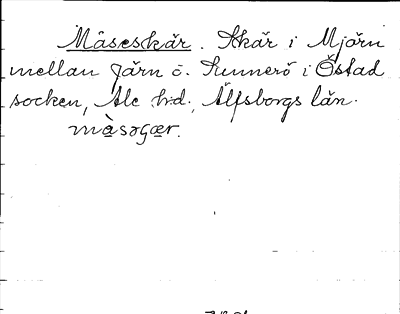 Måseskär. Skär i Mjörn
mellan Järn o. Kunnerö i Östad
socken, Ale h:d, Älfsborgs län.
mà̱səgæ̱r.